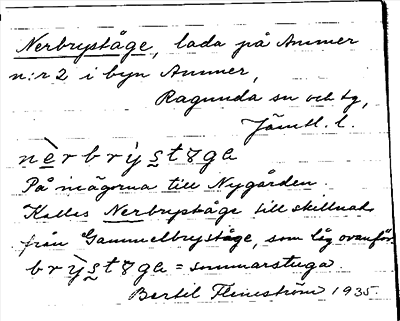 Nerbryståge, lada på Ammer
n:r 2 i byn Ammer,
Ragunda sn och tg,
Jämtl. l.
nèrbrỳstɤga
På inägorna till Nygården.
Kallas Nerbryståge till skillnad
från Gammelbryståge, som låg ovanför.
brỳstɤga = sommarstuga
Bertil Flemström 1935.